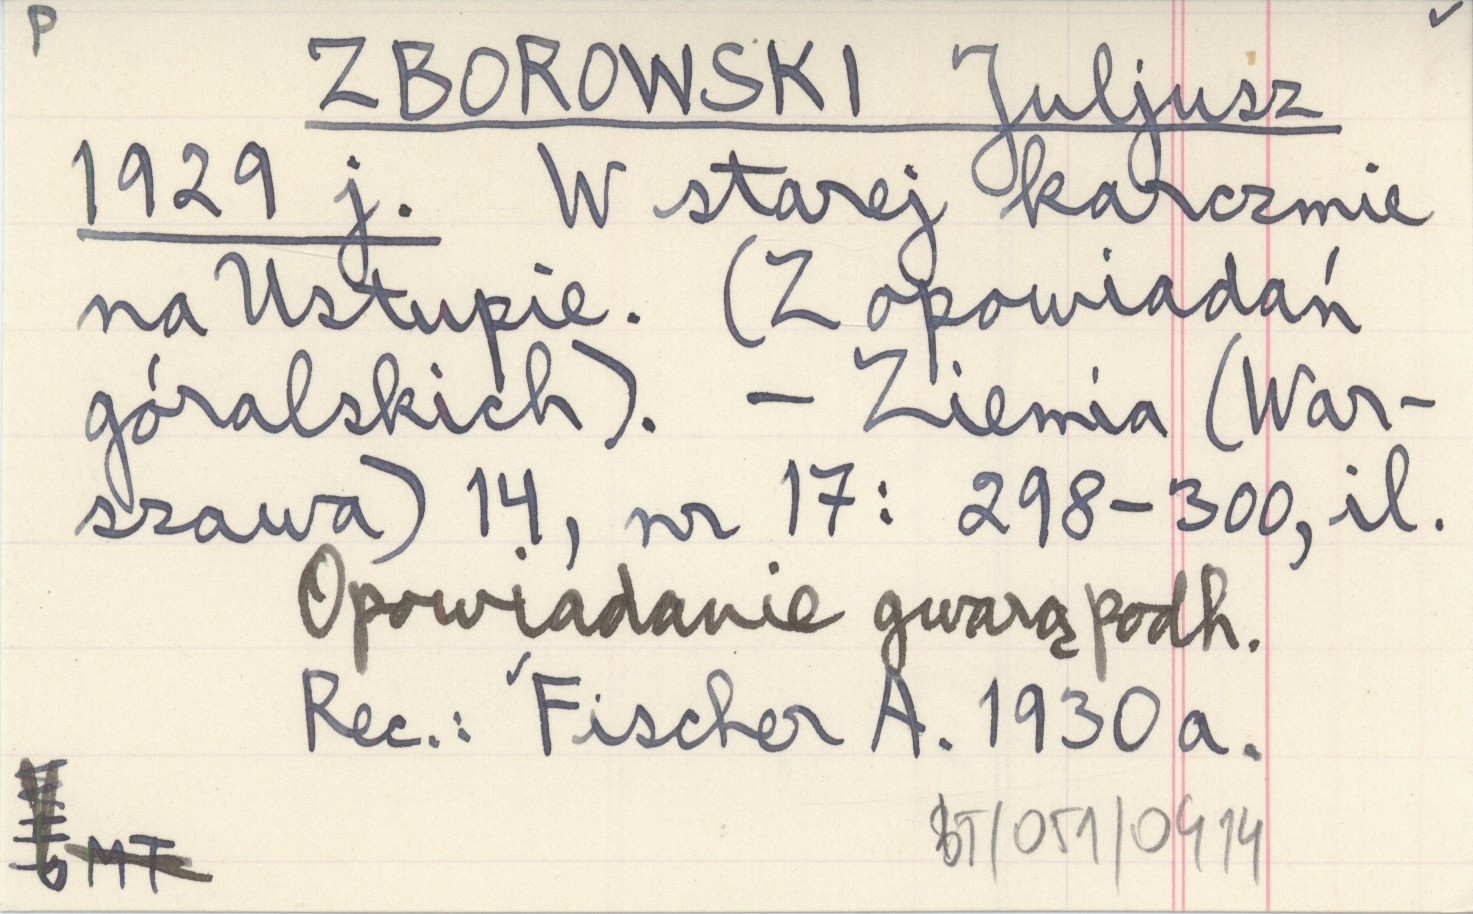 P ✓
ZBOROWSKI Juljusz
1929 j. W starej karczmie
na Ustupie. (Z opowiadań
góralskich). – Ziemia (War-
szawa) 14, nr 17: 298–300, il.
Opowiadanie gwarą podh.
Rec.: ✓Fischer A. 1930 a.
BT/051/0414
MT